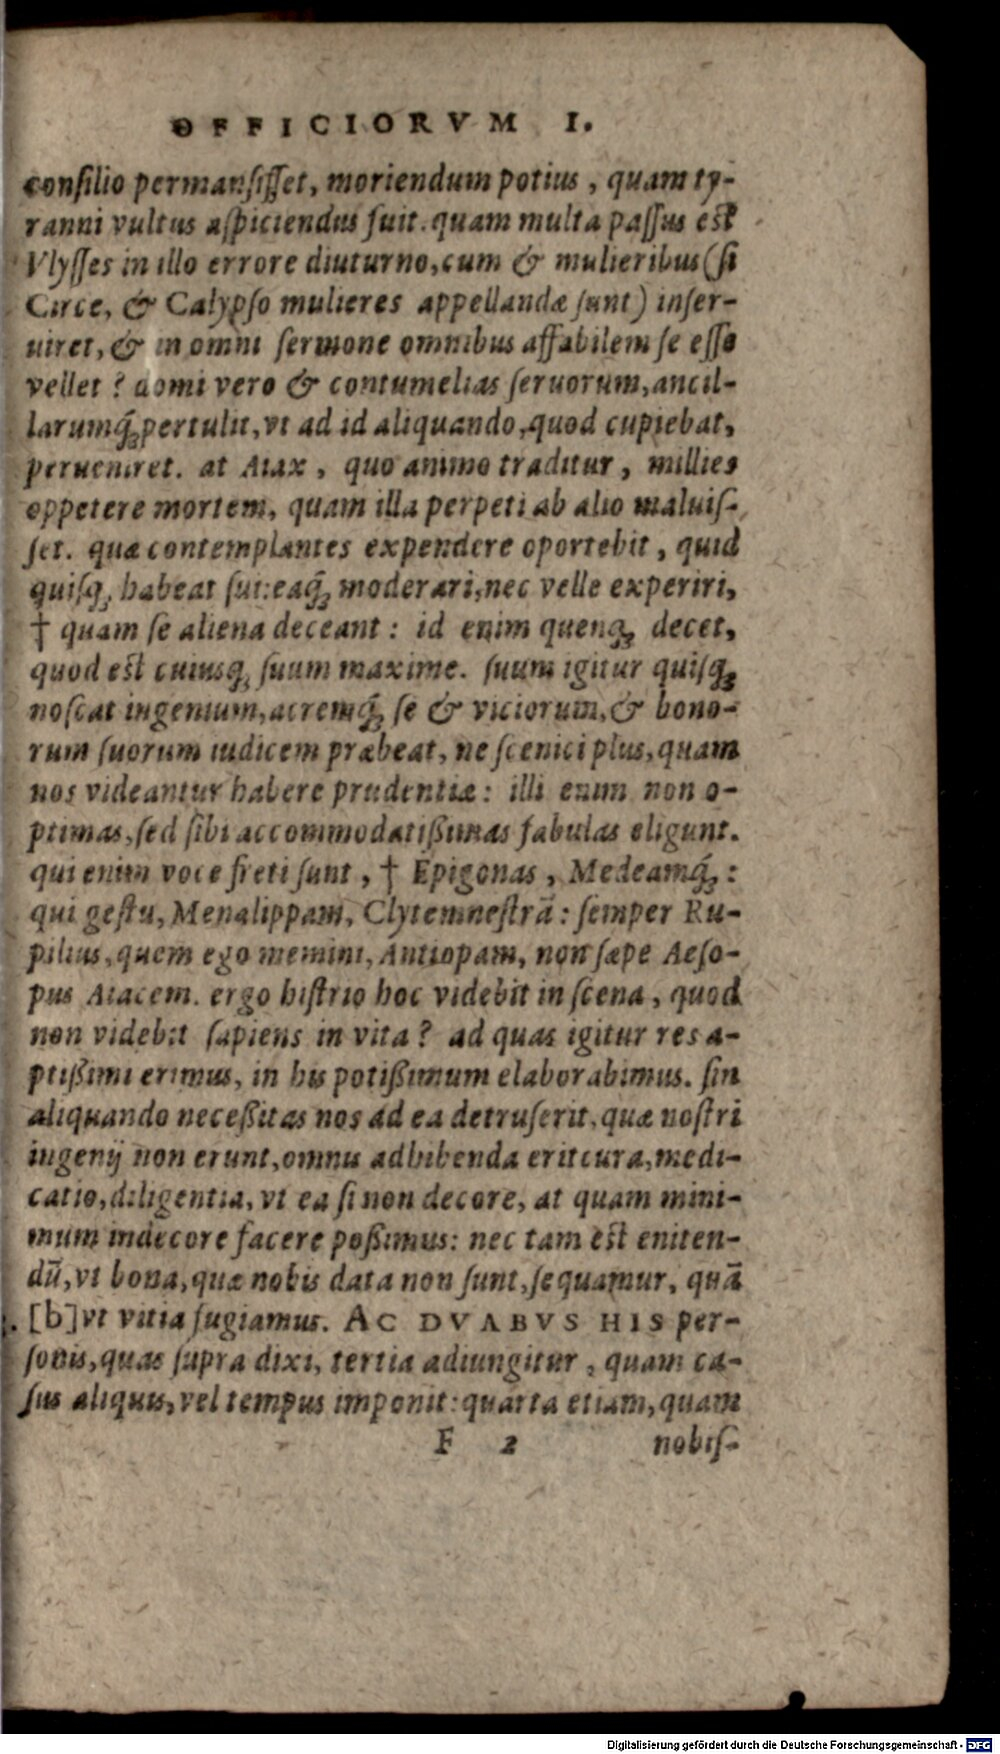 OFFICIORVM I.
conſilio permanſiſſet, moriendum potius, quam ty-
ranni vultus aſpiciendus fuit. quam multa paſſus est
Vlyſſes in illo errore diuturno, cum & mulieribus (ſi
Circe, & Calypſo mulieres appellandæ ſunt) inſer-
uiret, & in omni ſermone omnibus affabilem ſe eſſe
vellet? domi vero & contumelias ſeruorum, ancil-
larumq́ꝫ pertulit, vt ad id aliquando, quod cupiebat,
perueniret. at Aiax, quo animo traditur, millies
oppetere mortem, quam illa perpeti ab alio maluiſ-
ſet. quæ contemplantes expendere oportebit, quid
quiſqꝫ habeat ſui: eaq́ꝫ moderari, nec velle experiri,
† quam ſe aliena deceant: id enim quenqꝫ decet,
quod est cuiusqꝫ ſuum maxime. ſuum igitur quiſqꝫ
noſcat ingenium, acremq́ꝫ ſe & viciorum, & bono-
rum ſuorum iudicem præbeat, ne ſcenici plus, quam
nos videantur habere prudentiæ: illi enim non o-
ptimas, ſed ſibi accommodatißimas fabulas eligunt.
qui enim voce freti ſunt, † Epigonas, Medeamq́ꝫ:
qui geſtu, Menalippam, Clytemneſtrã: ſemper Ru-
pilius, quem ego memini, Antiopam, non ſæpe Aeſo-
pus Aiacem. ergo hiſtrio hoc videbit in ſcena, quod
non videbit ſapiens in vita? ad quas igitur res a-
ptißimi erimus, in his potißimum elaborabimus. ſin
aliquando neceßitas nos ad ea detruſerit, quæ noſtri
ingenij non erunt, omnis adhibenda erit cura, medi-
catio, diligentia, vt ea ſi non decore, at quam mini-
mum indecore facere poßimus: nec tam est eniten-
dũ, vt bona, quæ nobis data non ſunt, ſequamur, quã
[b] vt vitia fugiamus. AC DVABVS HIS per-
ſonis, quas ſupra dixi, tertia adiungitur, quam ca-
ſus aliquis, vel tempus imponit: quarta etiam, quam
F 2 nobiſ-
Digitalisierung gefördert durch die Deutsche Forschungsgemeinschaft - DFG